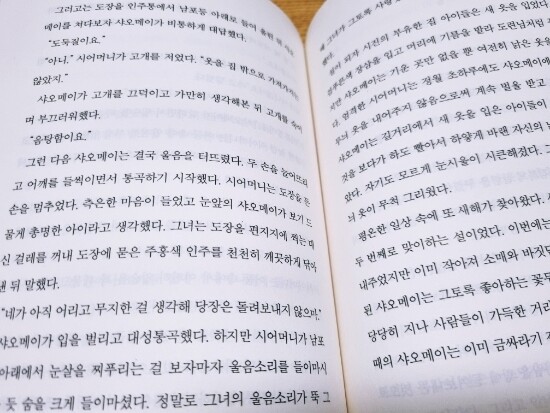 그러고는 도장을 인주통에서 남포등 아래로 들어 올린 뒤
메이를 쳐다보자 샤오메이가 비통하게 대답했다.
"도둑질이요."
"아니." 시어머니가 고개를 저었다. "옷을 집 밖으로 가져가지는
않았지."
샤오메이가 고개를 끄덕이고 가만히 생각해본 뒤 고개를 숙이
며 부끄러워했다.
"음탕함이요."
그런 다음 샤오메이는 결국 울음을 터뜨렸다. 두 손을 늘어뜨리
고 어깨를 들썩이면서 통곡하기 시작했다. 시어머니는 도장을 든
손을 멈추었다. 측은한 마음이 들었고 눈앞의 샤오메이가 보기 드
물게 총명한 아이라고 생각했다. 그녀는 도장을 편지지에 찍는 대
신 걸레를 꺼내 도장에 묻은 주홍색 인주를 천천히 깨끗하게 닦아
낸 뒤 말했다.
"네가 아직 어리고 무지한 걸 생각해 당장은 돌려보내지 않으마."
샤오메이가 입을 벌리고 대성통곡했다. 하지만 시어머니가 남포
아래에서 눈살을 찌푸리는 걸 보자마자 울음소리를 들이마시
듯 숨을 크게 들이마셨다. 정말로 그녀의 울음소리가 뚝 그
때 그녀가 그토록 사랑
원의 외자 시진의 부유한 집 아이들은 새 옷을 입었다
검푸른색 장삼을 입고 머리에 기름을 발라 도련님처럼
지만 샤오메이는 가운 곳만 없을 뿐 여전히 낡은 옷을
다. 엄격한 시어머니는 정월 초하루에도 샤오메이에게
무늬 옷을 내어주지 않음으로써 계속 벌을 받고
샤오메이는 길거리에서 새 옷을 입은 아이들이
것을 보다가 하도 빨아서 하얗게 바랜 자신의
았다. 자기도 모르게 눈시울이 시큰해졌다. 그
늬 옷이 무척 그리웠다.
평온한 일상 속에 또 새해가 찾아왔다.
두 번째로 맞이하는 설이었다. 이번에는
내주었지만 이미 작아져 소매와 바짓단
된 샤오메이는 그토록 좋아하는 꽃무
당당히 지나 사람들이 가득한 거리
때의 샤오메이는 이미 금싸라기